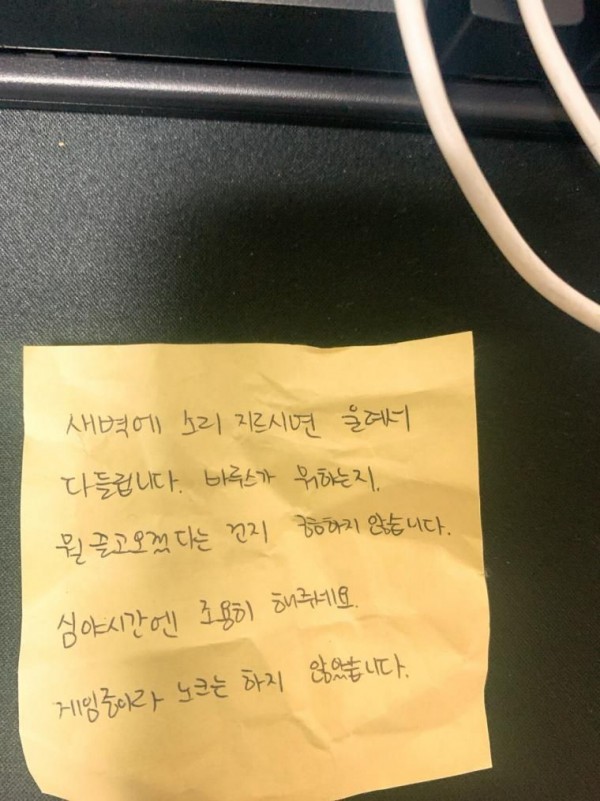 새벽에 소리 지르시면 울려서
다 들립니다. 바루스가 뭐하는지.
뭘 끌고오겠다는 건지 궁금하지 않습니다.
심야시간엔 조용히 해주세요.
게임중이라 노크는 하지 않았습니다.